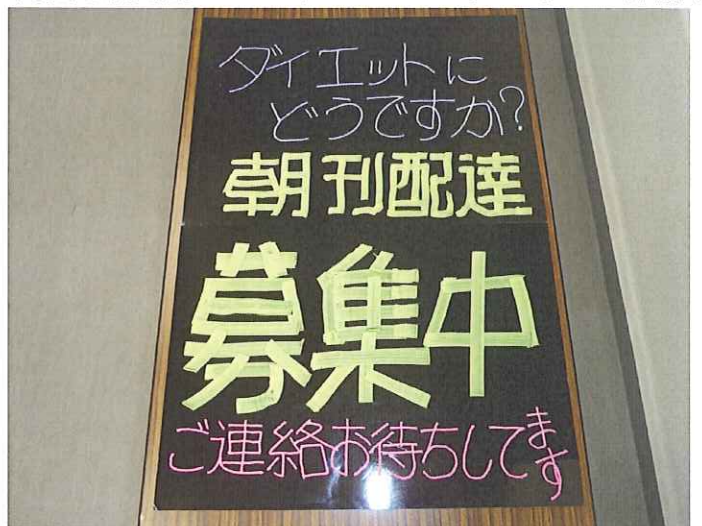 ダイエットに
どうですか?
朝刊配達
募集中
ご連絡お待ちしてます